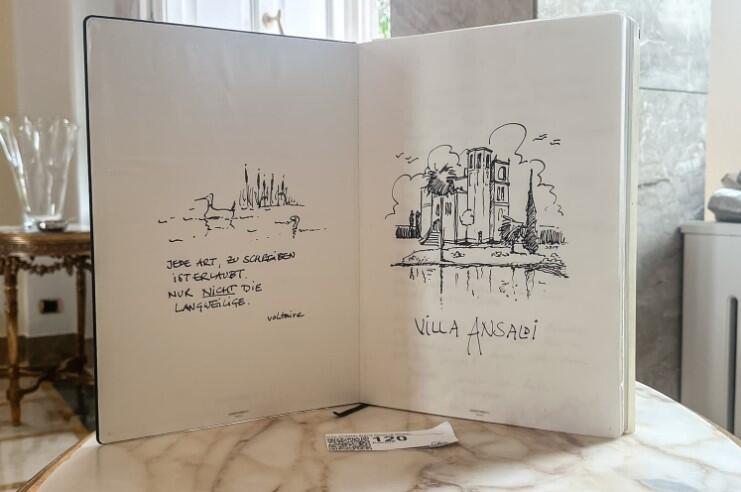 JEDE ART, ZU SCHREIBEN
IST ERLAUBT.
NUR NICHT DIE
LANGWEILIGE.
Voltaire
VILLA ANSALDI
120